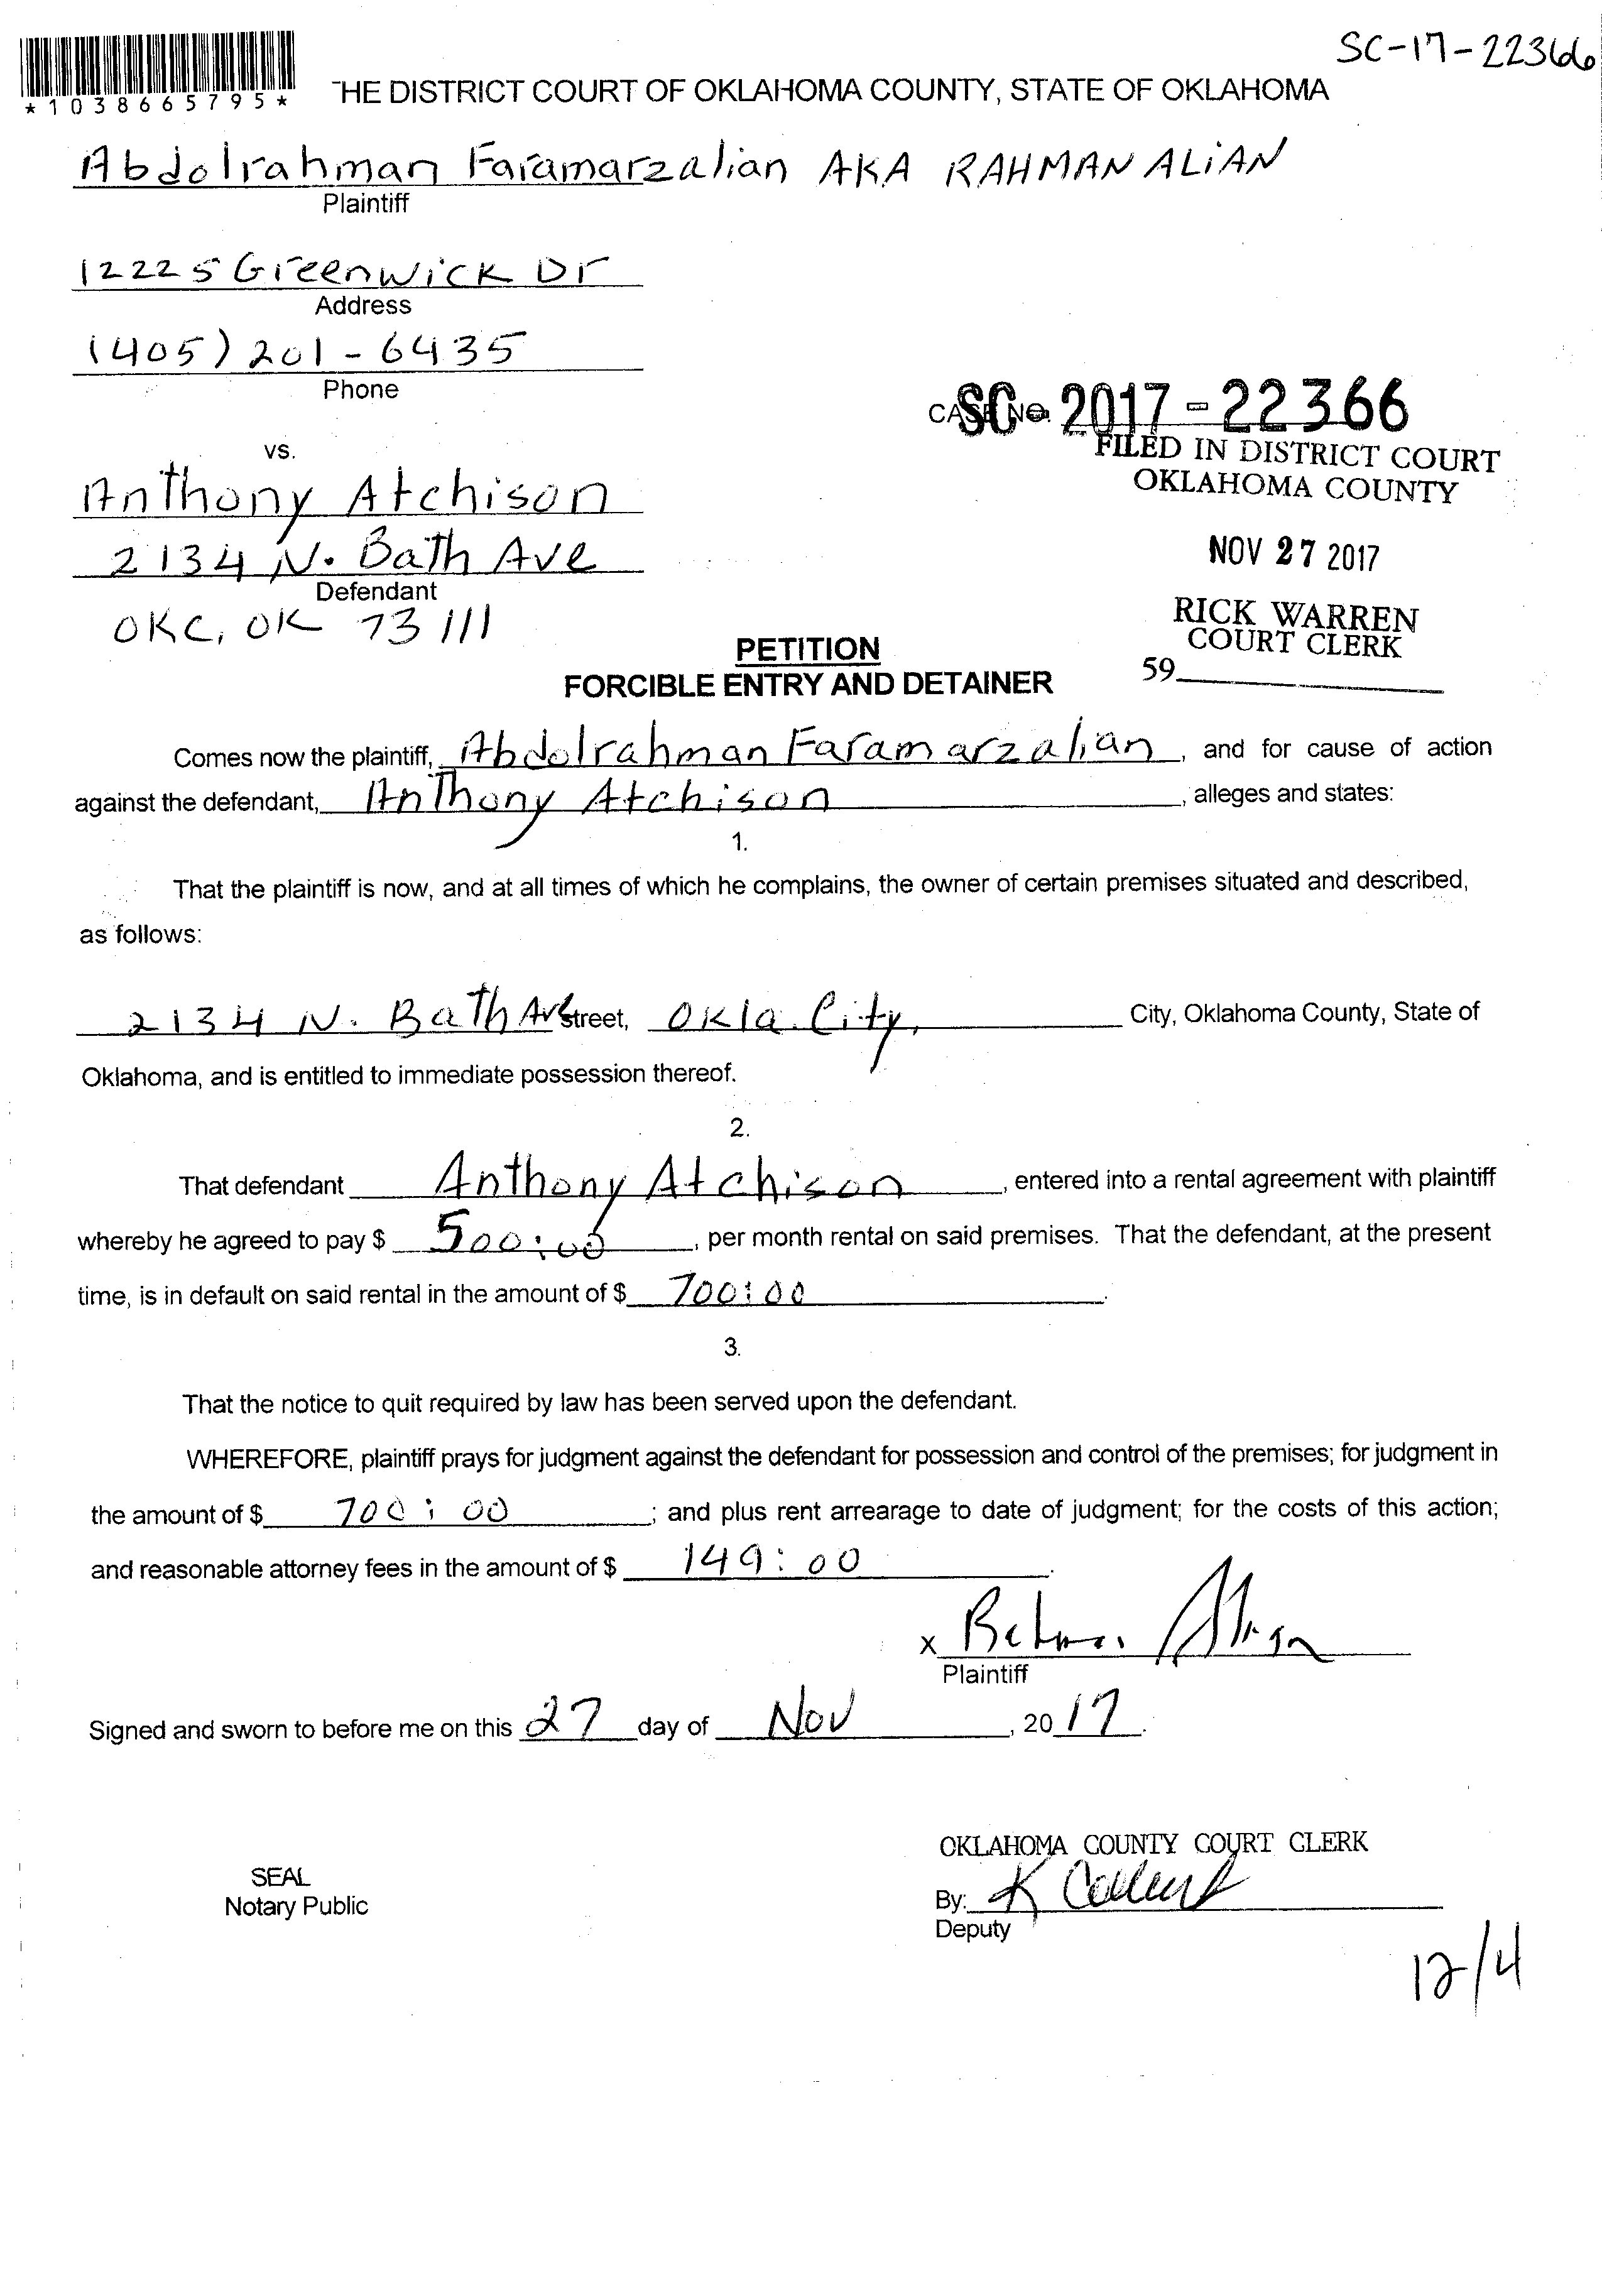 SC-17-22366
*1038665795*
THE DISTRICT COURT OF OKLAHOMA COUNTY, STATE OF OKLAHOMA
Abdolrahman Faramarzalian AKA RAHMAN ALIAN
Plaintiff
12225 Greenwick Dr
Address
(405) 201-6435
Phone
CASE NO. SC-2017-22366
FILED IN DISTRICT COURT
OKLAHOMA COUNTY
vs.
Anthony Atchison
2134 N. Bath Ave
Defendant
OKC, OK 73111
NOV 27 2017
RICK WARREN
COURT CLERK
59
PETITION
FORCIBLE ENTRY AND DETAINER
Comes now the plaintiff, Abdolrahman Faramarzalian, and for cause of action
against the defendant, Anthony Atchison, alleges and states:
1.
That the plaintiff is now, and at all times of which he complains, the owner of certain premises situated and described,
as follows:
2134 N. Bath Ave Street, Okla. City, City, Oklahoma County, State of
Oklahoma, and is entitled to immediate possession thereof.
2.
That defendant Anthony Atchison, entered into a rental agreement with plaintiff
whereby he agreed to pay $ 500:00, per month rental on said premises. That the defendant, at the present
time, is in default on said rental in the amount of $ 700:00.
3.
That the notice to quit required by law has been served upon the defendant.
WHEREFORE, plaintiff prays for judgment against the defendant for possession and control of the premises; for judgment in
the amount of $ 700:00; and plus rent arrearage to date of judgment; for the costs of this action;
and reasonable attorney fees in the amount of $ 149:00.
x
Plaintiff
Signed and sworn to before me on this 27 day of Nov, 2017.
OKLAHOMA COUNTY COURT CLERK
SEAL
Notary Public
By: K
Deputy
12/4